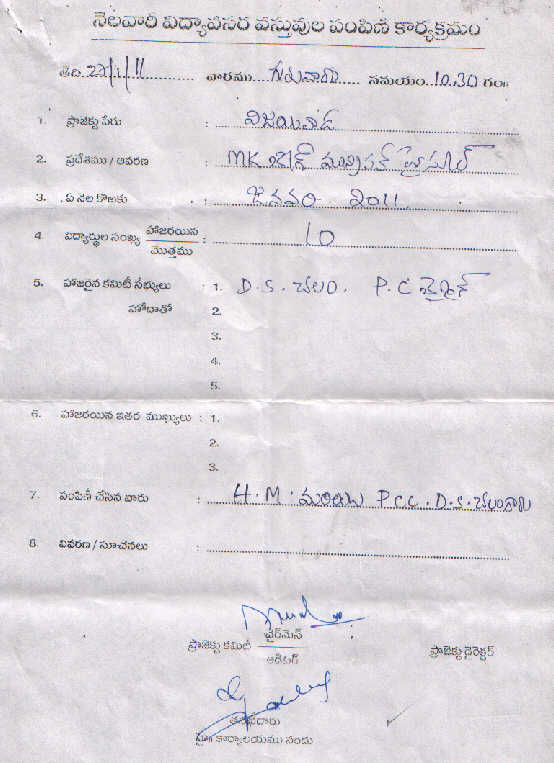 నెలవారీ విద్యావసర వస్తువుల పంపిణి కార్యక్రమం
తేది 27/1/11 వారము గురువారం సమయం 10.30 గం॥
1. ప్రాజెక్టు పేరు : విజయవాడ
2. ప్రదేశము / ఆవరణ : MK బేగ్ మున్సిపల్
3. ఏ నెల కొఱకు : జనవరి 2011
4. విద్యార్థుల సంఖ్య హాజరయిన / మొత్తము : 10
5. హాజరైన కమిటీ సభ్యులు : 1. D.S. చలం. P.C చైర్మన్
హోదాతో 2.
3.
4.
5.
6. హాజరయిన ఇతర ముఖ్యులు : 1.
2.
3.
7. పంపిణీ చేసిన వారు : H.M. మరియు P.C.C. D.S. చలంగారు
8. వివరణ / సూచనలు :
ప్రాజెక్టు కమిటీ ఛైర్‌మెన్ / ఆడిటర్ ప్రాజెక్టు డైరెక్టర్
కార్యాలయము నందు